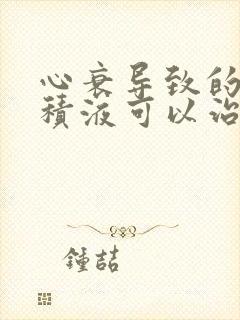 心衰导致的
積液可以治
鍾喆